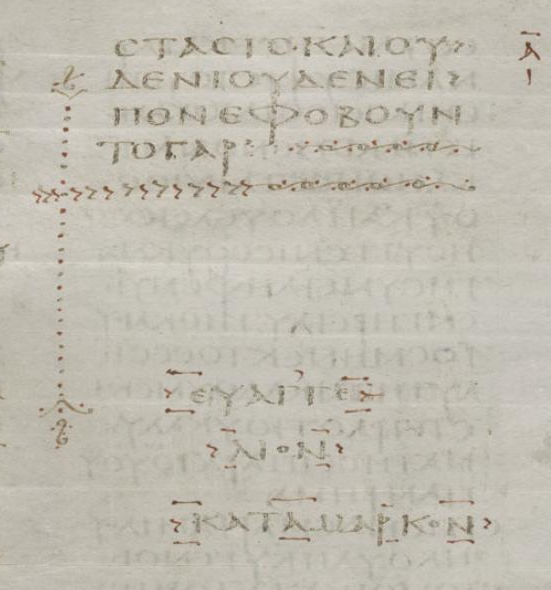 ΕΚΣΤΑΣΙΣ ΚΑΙ ΟΥ
ΔΕΝΙ ΟΥΔΕΝ ΕΙ
ΠΟΝ ΕΦΟΒΟΥΝ
ΤΟ ΓΑΡ
ΕΥΑΓΓΕ
ΛΙΟΝ
ΚΑΤΑ ΜΑΡΚΟΝ